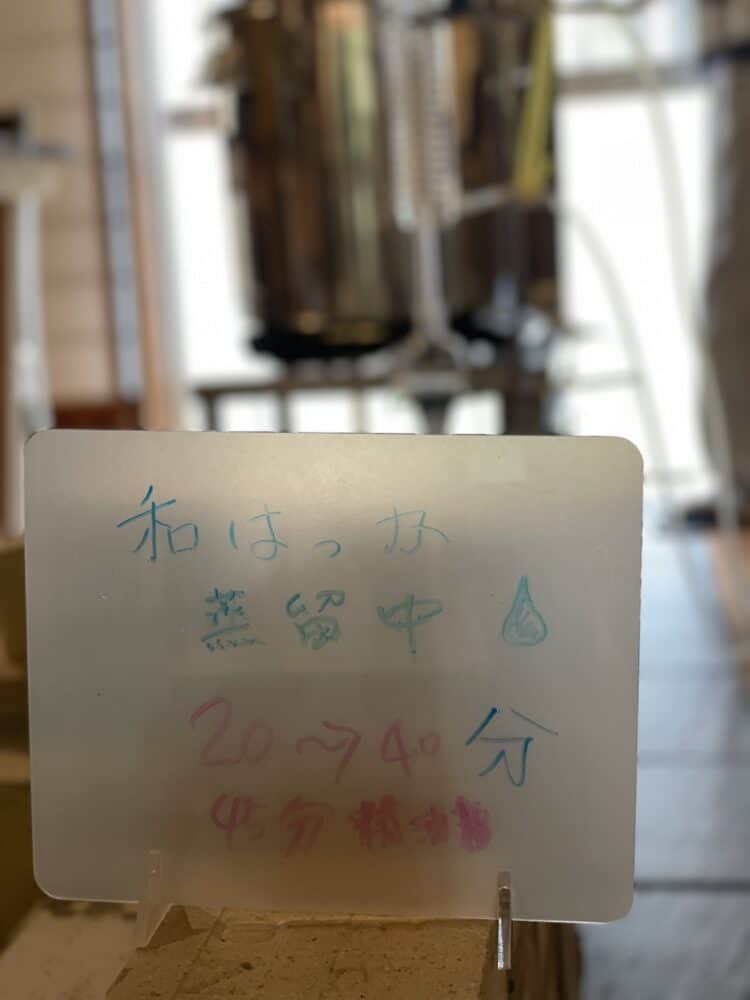 和はっか
蒸留中
20〜40分
45分精油